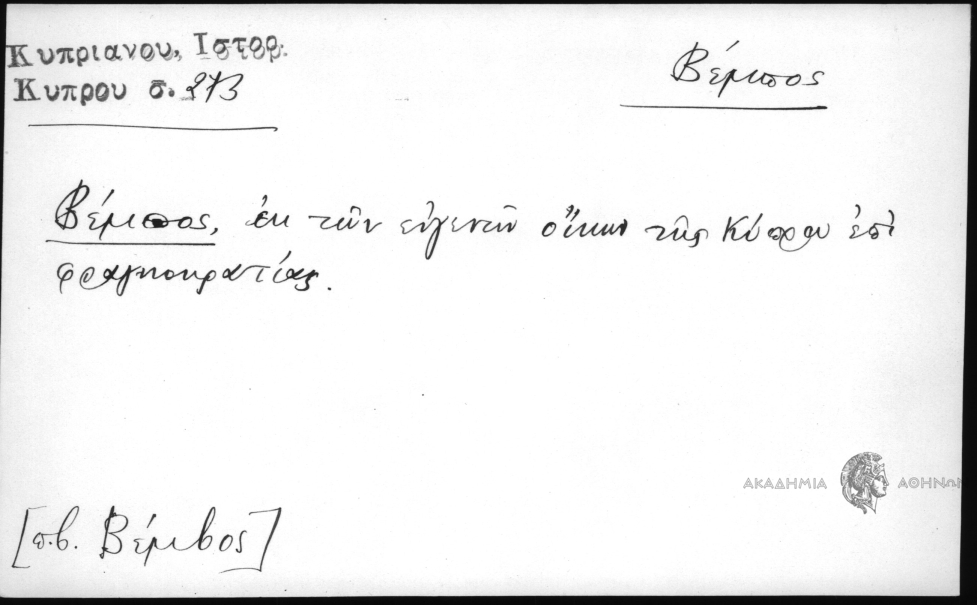 Κυπριανου, Ιστορ.
Κυπρου σ. 273
Βέμπος
Βέμπος, ἐκ τῶν εὐγενῶν οἴκων τῆς Κύπρου ἐπὶ
φραγκοκρατίας.
ΑΚΑΔΗΜΙΑ ΑΘΗΝΩΝ
[π.β. Βέμβος]